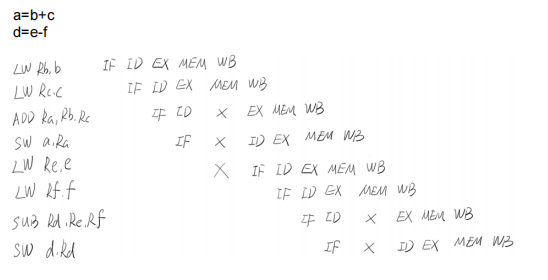 a=b+c
d=e-f
LW Rb.b IF ID EX MEM WB
LW Rc.c IF ID EX MEM WB
ADD Ra,Rb.Rc IF ID X EX MEM WB
SW a.Ra IF X ID EX MEM WB
LW Re.e X IF ID EX MEM WB
LW Rf.f IF ID EX MEM WB
SUB Rd.Re.Rf IF ID X EX MEM WB
SW d.Rd IF X ID EX MEM WB